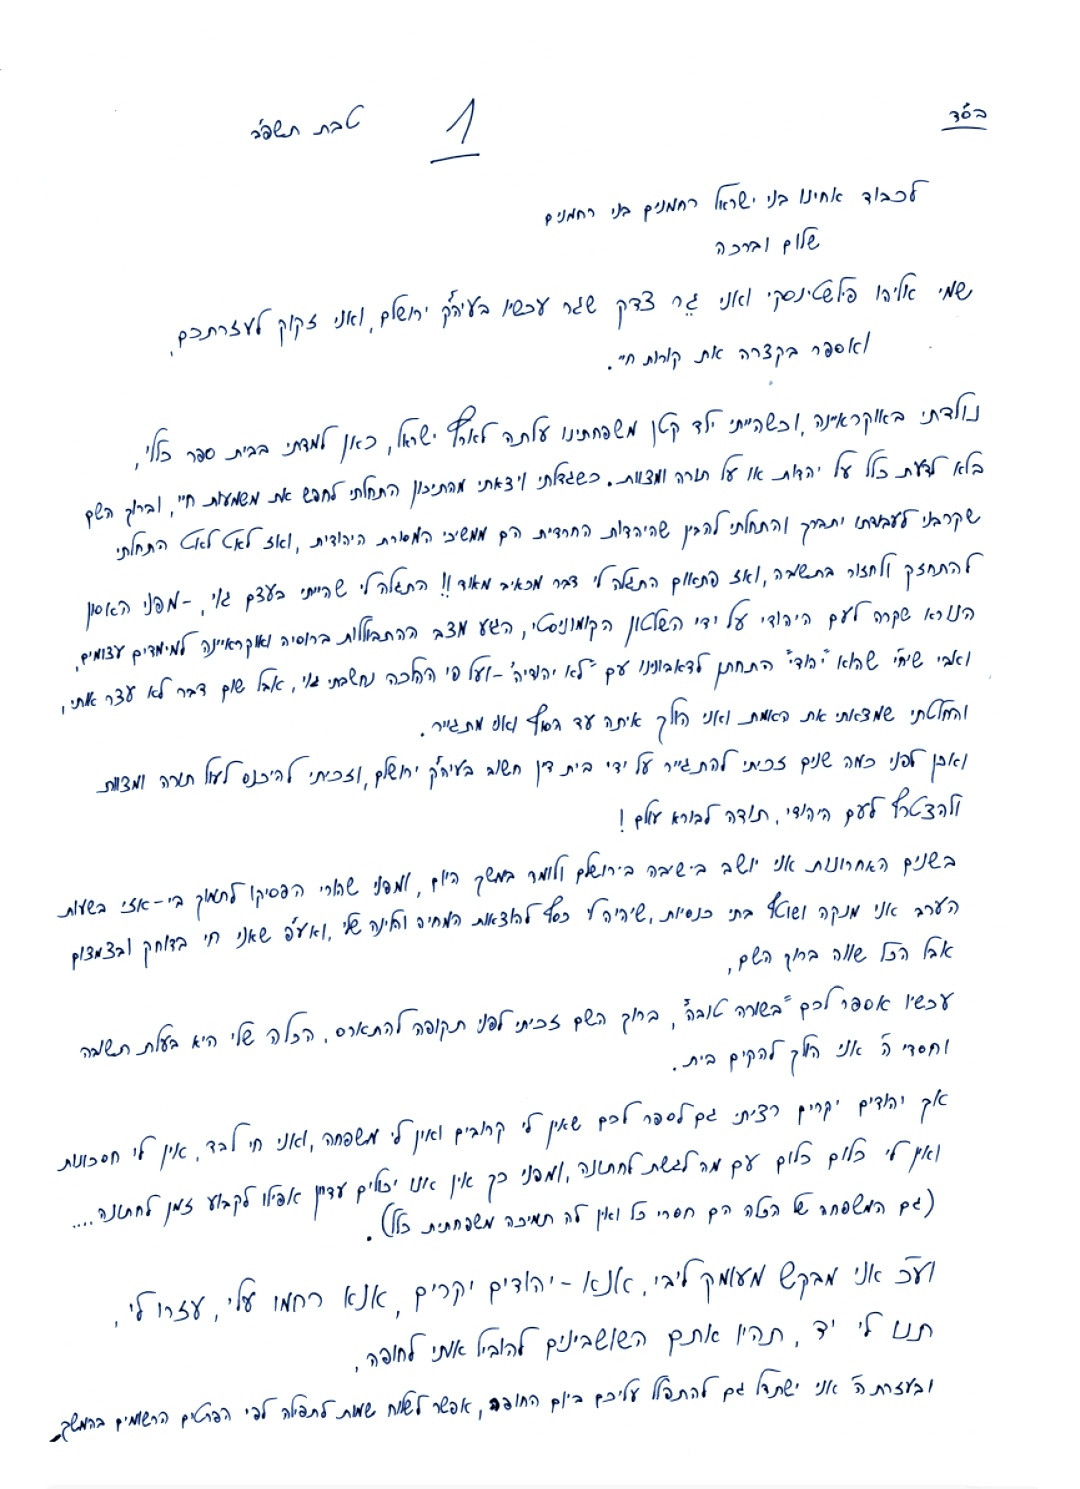 בס"ד
1
טבת תשפ"ב
לכבוד אחינו בני ישראל רחמנים בני רחמנים
שלום וברכה
שמי אליהו פילשטינסקי ואני גֵר צדק שגר עכשיו בעיה"ק ירושלם, ואני זקוק לעזרתכם,
ואספר בקצרה את קורות חיי.
נולדתי באוקראיינה, וכשהייתי ילד קטן משפחתינו עלתה לארץ ישראל, כאן למדתי בבית ספר כללי,
בלא לדעת כלל על יהדות או על תורה ומצוות. כשגדלתי ויצאתי מהתיכון התחלתי לחפש את משמעות חיי, וברוך השם
שקרבני לעבודתו יתברך והתחלתי להבין שהיהדות החרדית הם ממשיכי המסורת היהודית, ואז לאט לאט התחלתי
להתחזק ולחזור בתשובה, ואז פתאום התגלה לי דבר מכאיב מאוד!! התגלה לי שהייתי בעצם גוי, - מפני האסון
הנורא שקרה לעם היהודי על ידי השלטון הקומוניסטי, הגע מצב ההתבוללות ברוסיה ואוקראיינה למימדים עצומים,
ואבי שיחי' שהוא "יהודי" התחתן לדאבונינו עם "לא יהודיה" - ועל פי ההלכה נחשבתי גוי, אבל שום דבר לא עצר אותי,
והחלטתי שמצאתי את האמת ואני הולך איתה עד הסוף ואני מתגייר.
ואכן לפני כמה שנים זכיתי להתגייר על ידי בית דין חשוב בעיה"ק ירושלם, וזכיתי להיכנס לעול תורה ומצוות
ולהצטרף לעם היהודי, תודה לבורא עולם!
בשנים האחרונות אני יושב בישיבה בירושלם ולומד במשך היום, ומפני שהורי הפסיקו לתמוך בי - אזי בשעות
הערב אני מנקה ושוטף בתי כנסיות, שיהיה לי כסף להוצאות המחיה והלינה שלי, ואע"פ שאני חי בדוחק ובצמצום
אבל הכל שווה ברוך השם,
עכשיו אספר לכם "בשורה טובה", ברוך השם זכיתי לפני תקופה להתארס, הכלה שלי היא בעלת תשובה
וחסדי ה' אני הולך להקים בית.
אך יהודים יקרים רציתי גם לספר לכם שאין לי קרובים ואין לי משפחה, ואני חי לבד, אין לי חסכונות
ואין לי כלום כלום עם מה לגשת לחתונה, ומפני כך אין אנו יכולים עדיין אפילו לקבוע זמן לחתונה....
(גם המשפחה של הכלה הם חסרי כל ואין לה תמיכה משפחתית כלל).
וע"כ אני מבקש מעומק ליבי, אנא - יהודים יקרים, אנא רחמו עלי, עזרו לי,
תנו לי יד, תהיו אתם השושבינים להוביל אותי לחופה,
ובעזרת ה' אני ישתדל גם להתפלל עליכם ביום החופה, אפשר לשלוח שמות לתפילה לפי הפרטים הרשומים בהמשך